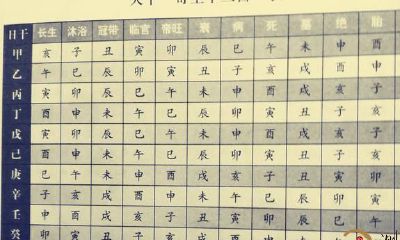 日干 长生 沐浴 冠带 临官 帝旺 衰 病 死 墓 绝 胎
甲 亥 子 丑 寅 卯 辰 巳 午 未 申 酉
乙 午 巳 辰 卯 寅 丑 子 亥 戌 酉 申
丙 寅 卯 辰 巳 午 未 申 酉 戌 亥 子
丁 酉 申 未 午 巳 辰 卯 寅 丑 子 亥
戊 寅 卯 辰 巳 午 未 申 酉 戌 亥 子
己 酉 申 未 午 巳 辰 卯 寅 丑 子 亥
庚 巳 午 未 申 酉 戌 亥 子 丑 寅 卯
辛 子 亥 戌 酉 申 未 午 巳 辰 卯 寅
壬 申 酉 戌 亥 子 丑 寅 卯 辰 巳 午
癸 卯 寅 丑 子 亥 戌 酉 申 未 午